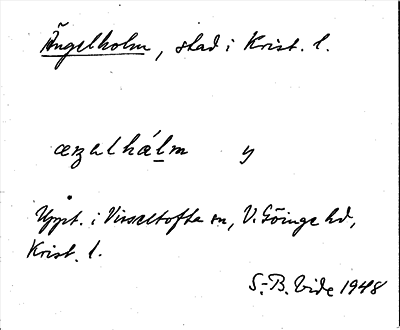 Ängelholm, stad i Krist. l.
æŋəlhálm y
Uppt. i Visseltofta sn, V. Göinge hd,
Krist. l.
S.-B. Vide 1948